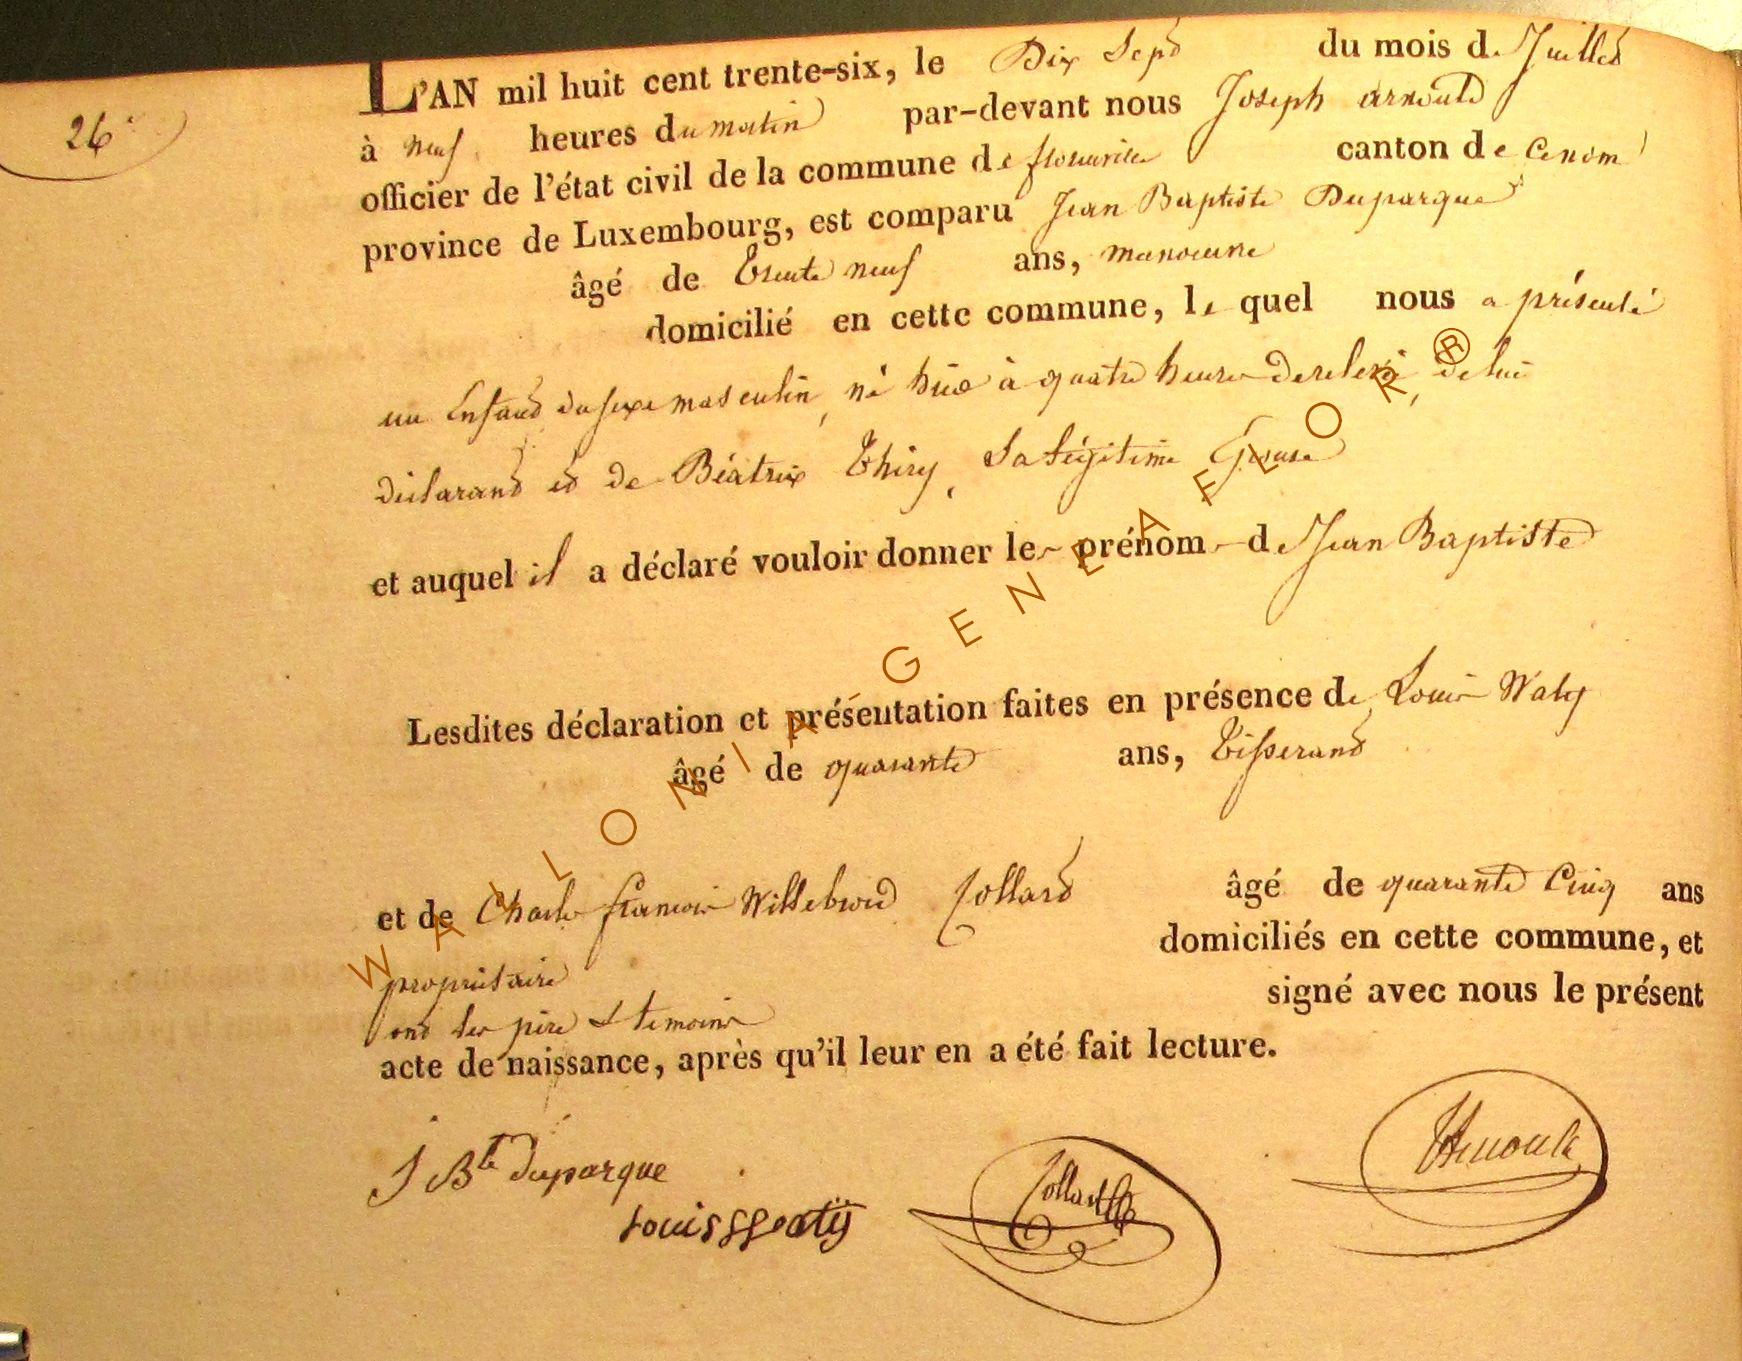 26.
L'AN mil huit cent trente-six, le Dix Sept du mois de Juillet
à neuf heures du matin par-devant nous Joseph arnould
officier de l'état civil de la commune de florenville canton de ce nom
province de Luxembourg, est comparu Jean Baptiste Duparque
âgé de Trente neuf ans, manoeuvre
domicilié en cette commune, le quel nous a présenté
un Enfant du sexe masculin, né hier à quatre heures de relevé, de lui
déclarant et de Béatrix Thiry, Sa Légitime Epouse
et auquel il a déclaré vouloir donner les prénom de Jean Baptiste
Lesdites déclaration et présentation faites en présence de Louis Waty
âgé de quarante ans, Tisserand
et de Charles françois Willebrord Collard âgé de quarante Cinq ans
propriétaire domiciliés en cette commune, et
ont les père & temoins signé avec nous le présent
acte de naissance, après qu'il leur en a été fait lecture.
J Bte duparque
Louis Waty
Collard
Arnould
WALLONIA-GENEAFLOR®